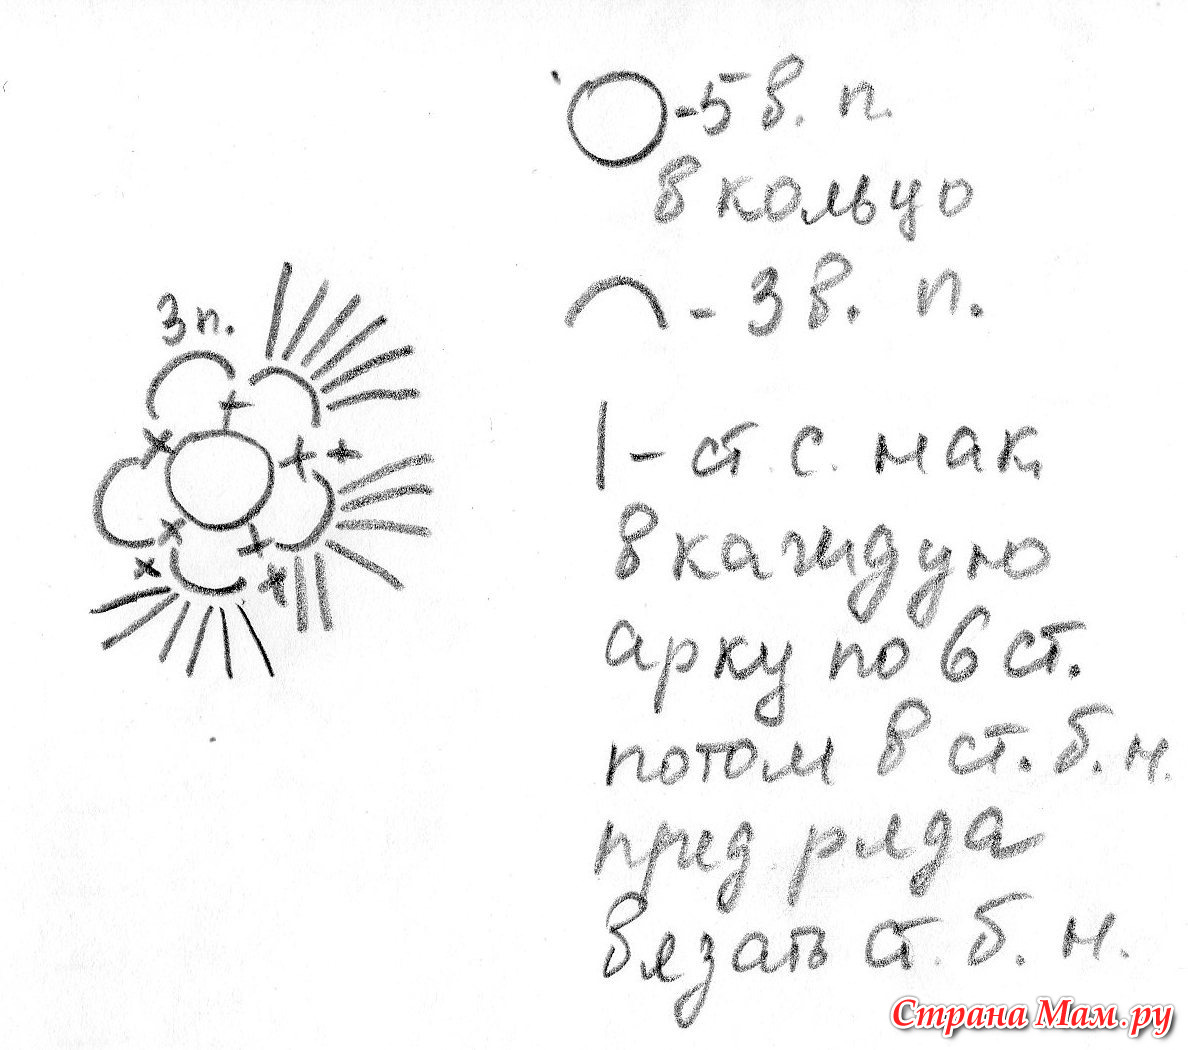 3 п.
-5 в. п.
в кольцо
- 3 в. п.
- ст. с. нак.
в каждую
арку по 6 ст.
потом в ст. б. н.
пред. ряда
вязать ст. б. н.
Страна Мам.ру